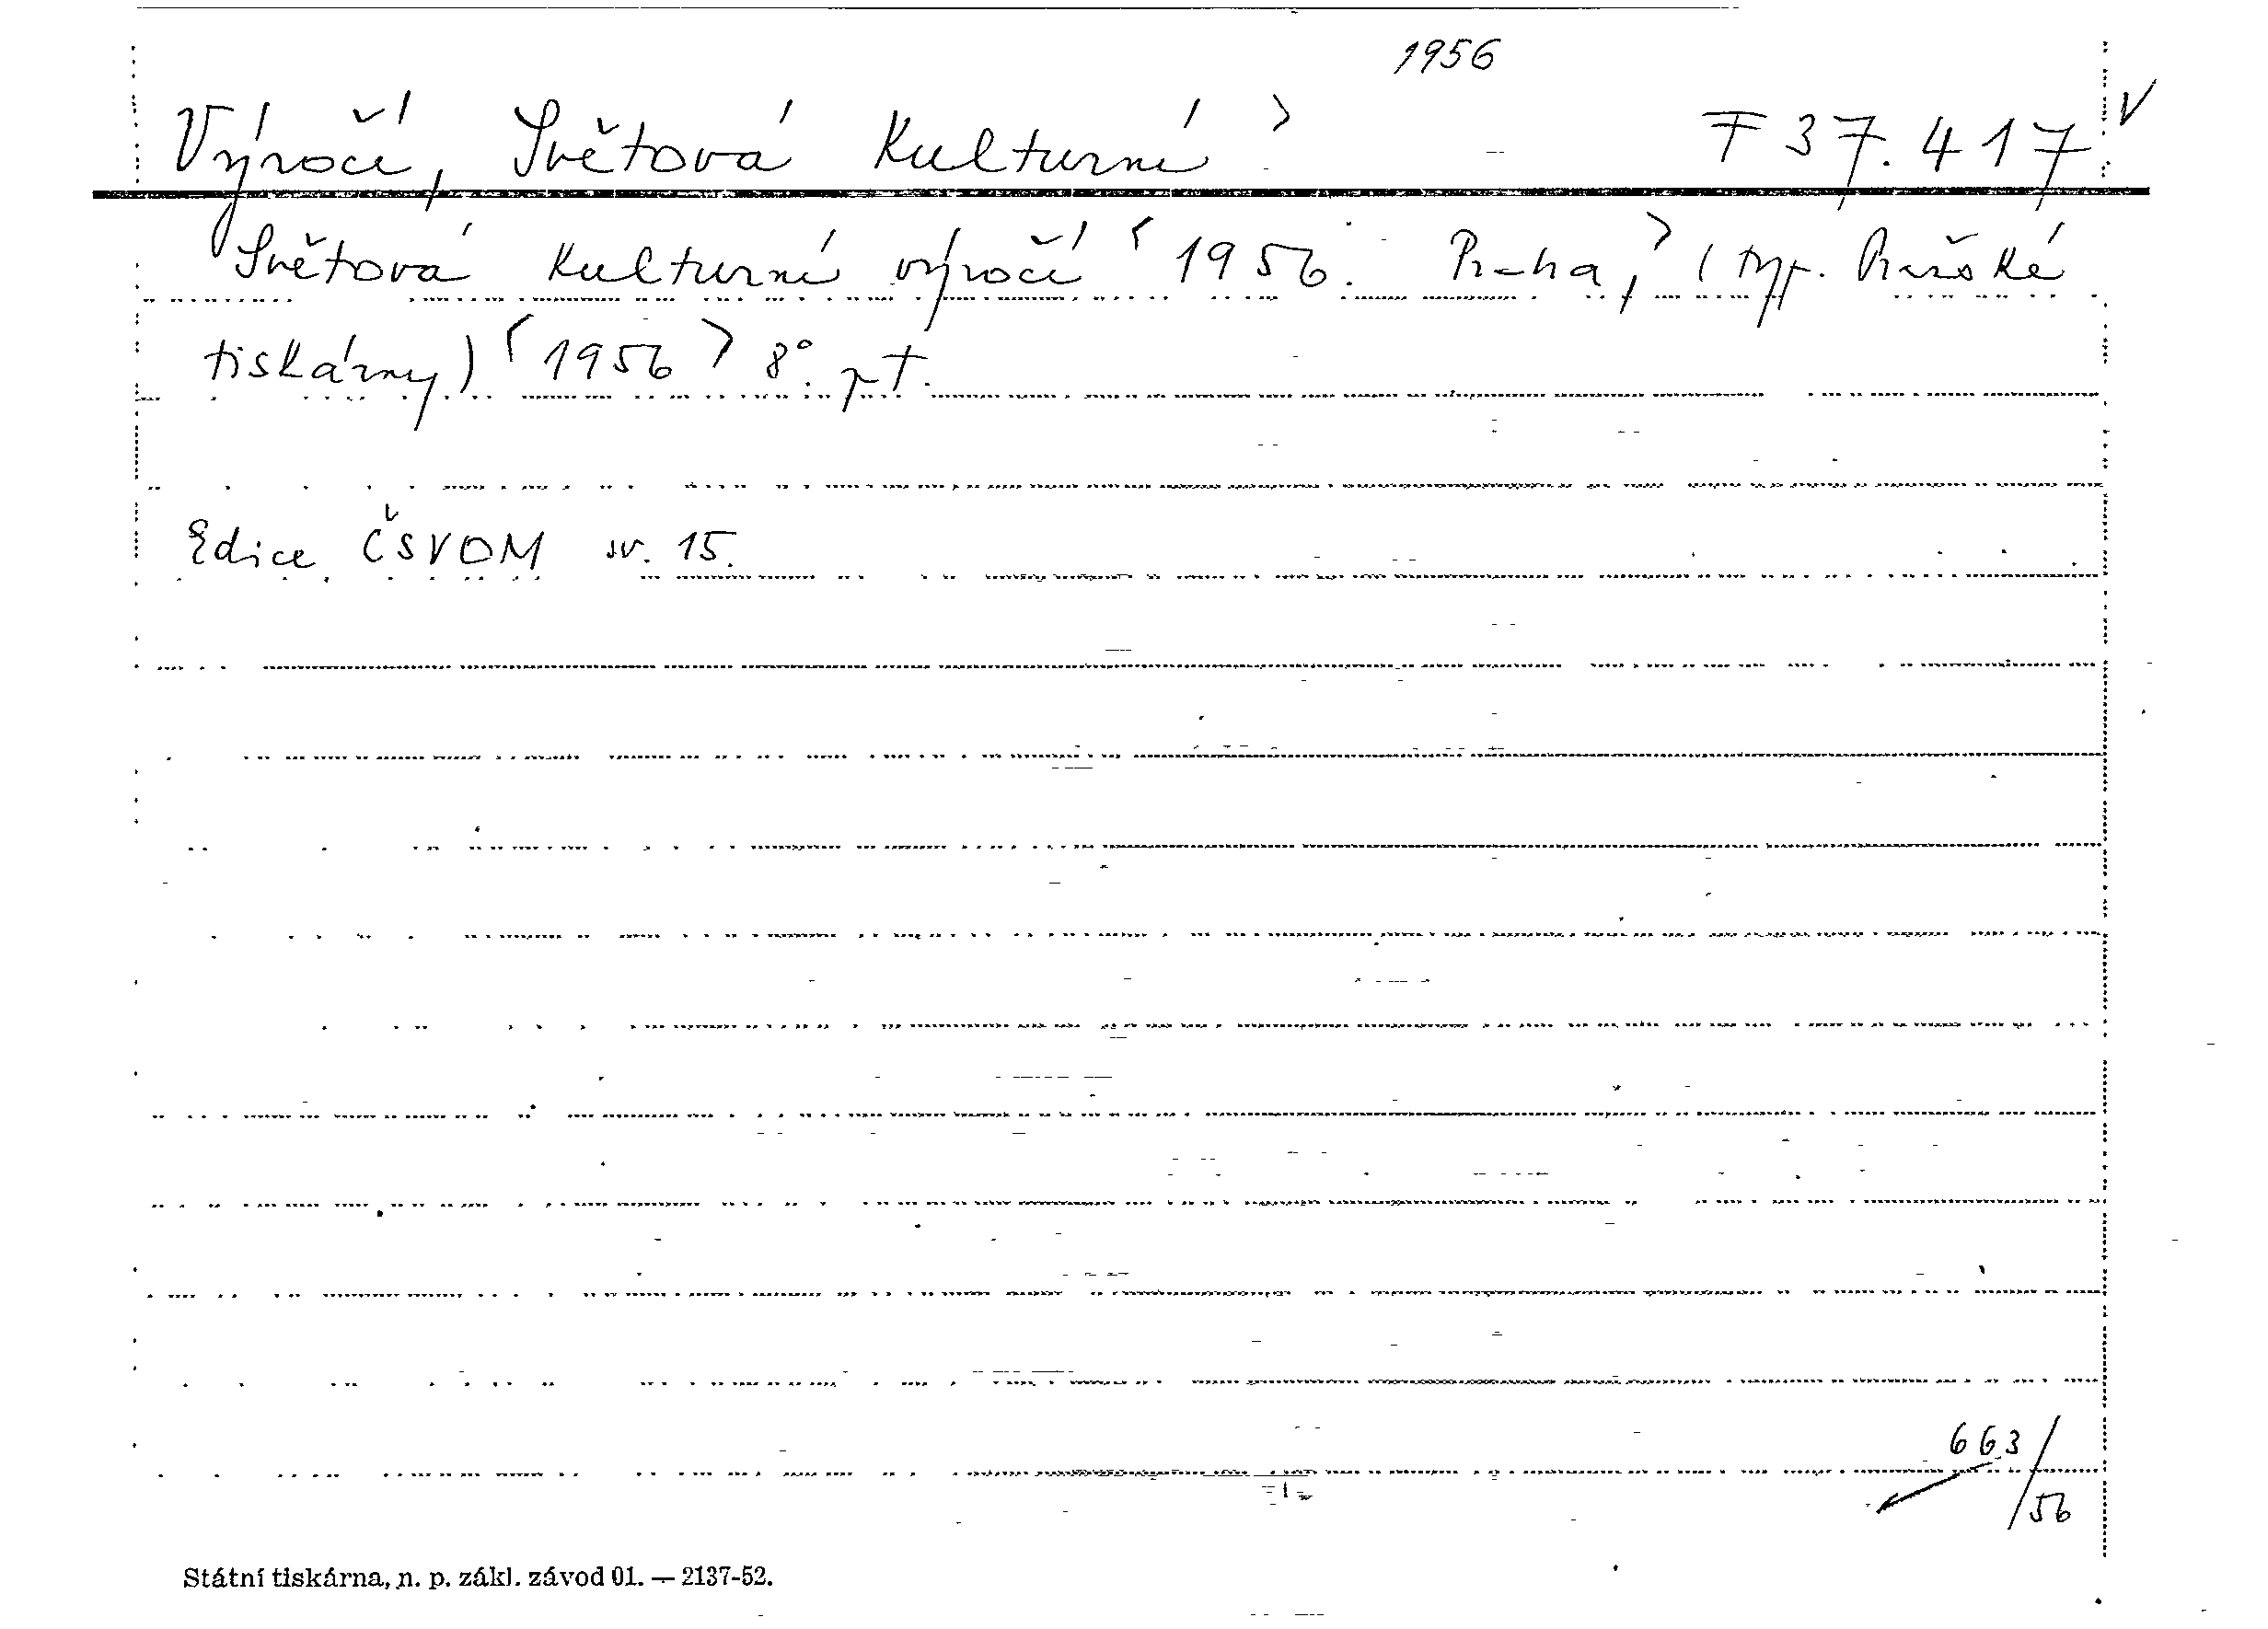 1956
Výročí, Světová kulturní > F 37.417 V
Světová kulturní výročí <1956. Praha,> (typ. Pražské
tiskárny) <1956> 8°. pt.
Edice ČSVOM sv. 15.
663/56
Státní tiskárna, n. p. zákl. závod 01. — 2137-52.